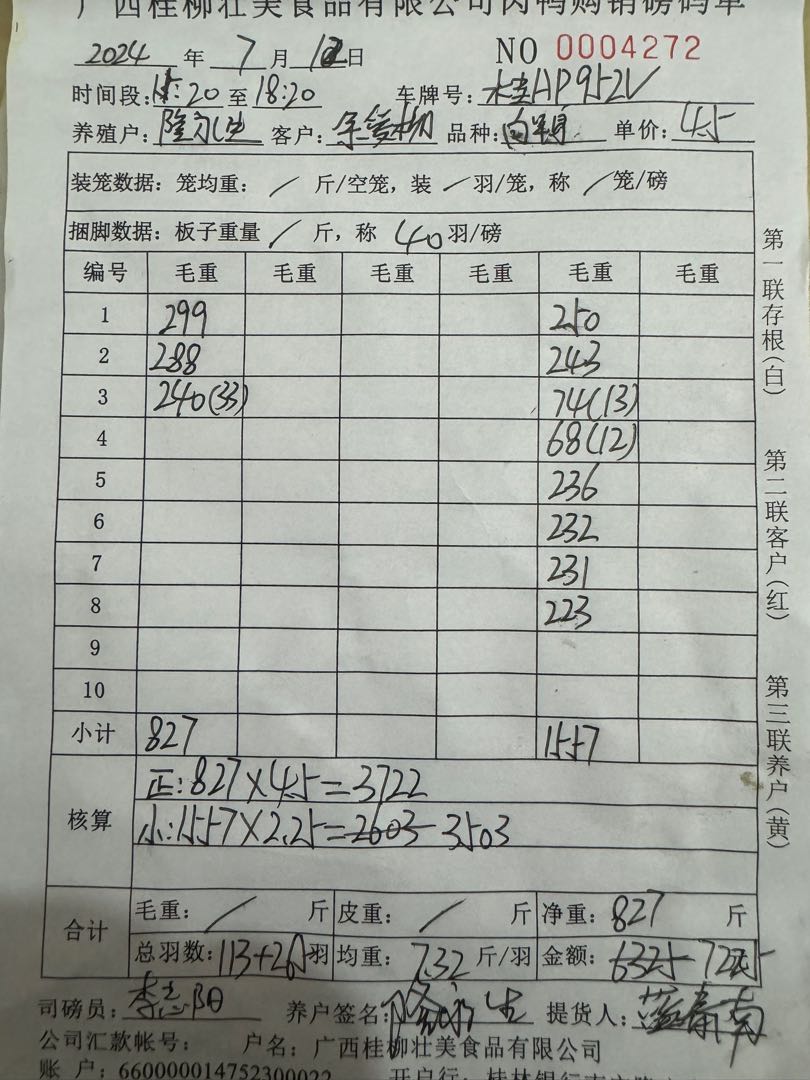 广西桂柳壮美食品有限公司肉鸭购销磅码单
2024 年 7 月 12 日 NO 0004272
时间段: 15:20 至 18:20 车牌号: 桂AP952V
养殖户: 隆永生 客户: 品种: 单价: 4.5
装笼数据: 笼均重: / 斤/空笼, 装 / 羽/笼, 称 / 笼/磅
捆脚数据: 板子重量 / 斤, 称 40 羽/磅
编号 毛重 毛重 毛重 毛重 毛重 毛重
1 299 250
2 288 243
3 240(33) 74(13)
4 68(12)
5 236
6 232
7 231
8 223
9
10
小计 827 1557
核算
正: 827×4.5=3722
小: 1557×2.25=2603 3503
合计
毛重: / 斤 皮重: / 斤 净重: 827 斤
总羽数: 113+265羽 均重: 7.32 斤/羽 金额: 6325 7225
司磅员: 李志阳 养户签名: 隆永生 提货人:
公司汇款帐号: 户名: 广西桂柳壮美食品有限公司
账 户: 660000014752300022
第一联存根(白) 第二联客户(红) 第三联养户(黄)